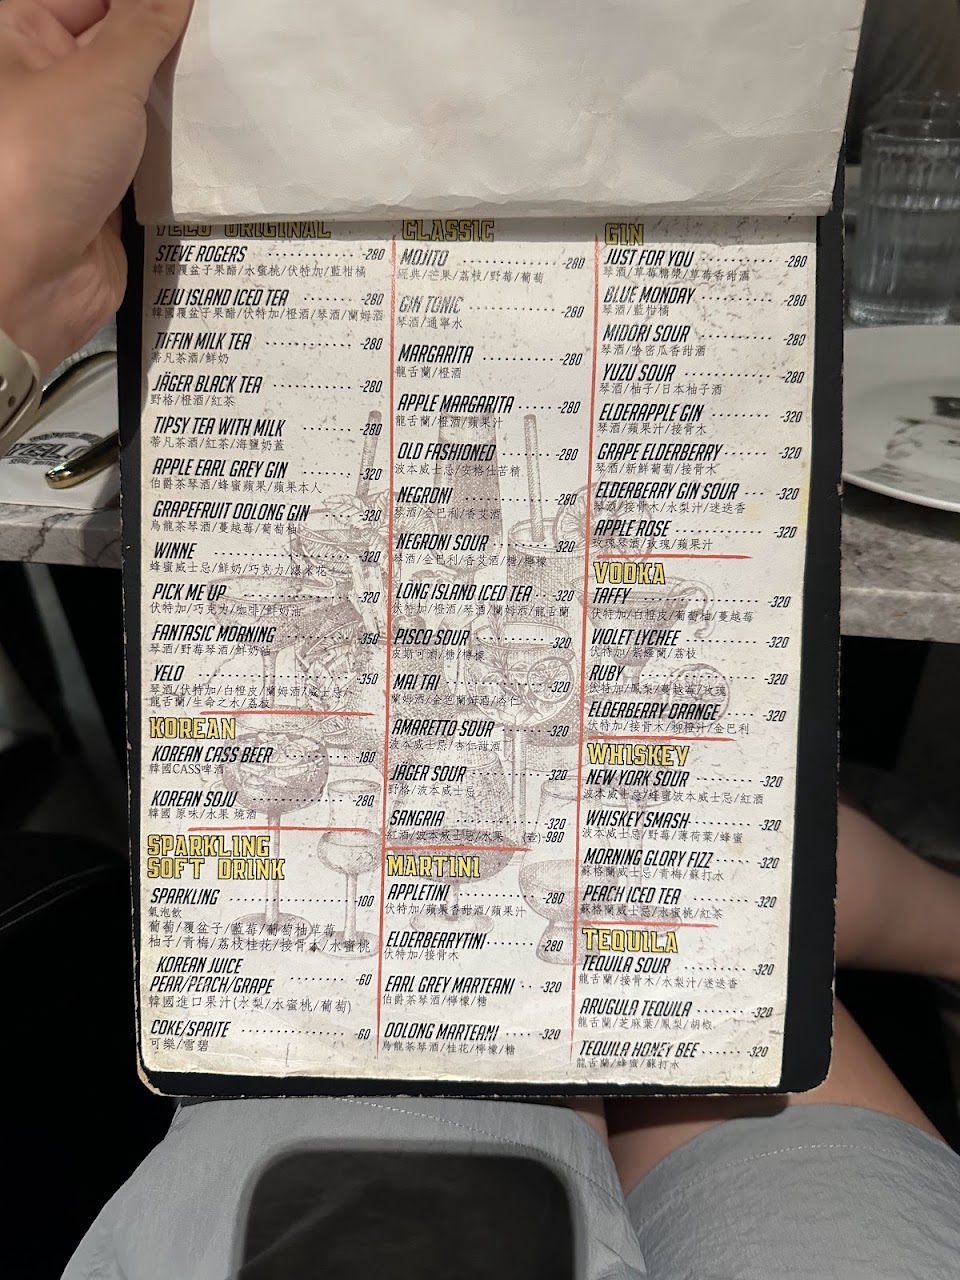 YELO ORIGINAL
STEVE ROGERS -280
韓國覆盆子果醋/水蜜桃/伏特加/藍柑橘
JEJU ISLAND ICED TEA -280
韓國覆盆子果醋/伏特加/橙酒/琴酒/蘭姆酒
TIFFIN MILK TEA -280
蒂凡茶酒/鮮奶
JÄGER BLACK TEA -280
野格/橙酒/紅茶
TIPSY TEA WITH MILK -280
蒂凡茶酒/紅茶/海鹽奶蓋
APPLE EARL GREY GIN -320
伯爵茶琴酒/蜂蜜蘋果/蘋果本人
GRAPEFRUIT OOLONG GIN -320
烏龍茶琴酒/蔓越莓/葡萄柚
WINNE -320
蜂蜜威士忌/鮮奶/巧克力/爆米花
PICK ME UP -320
伏特加/巧克力/咖啡/鮮奶油
FANTASIC MORNING -350
琴酒/野莓琴酒/鮮奶油
YELO -350
琴酒/伏特加/白橙皮/蘭姆酒/威士忌/
龍舌蘭/生命之水/荔枝
KOREAN
KOREAN CASS BEER -180
韓國CASS啤酒
KOREAN SOJU -280
韓國 原味/水果 燒酒
SPARKLING
SOFT DRINK
SPARKLING -100
氣泡飲
葡萄/覆盆子/藍莓/葡萄柚草莓
柚子/青梅/荔枝桂花/接骨木/水蜜桃
KOREAN JUICE
PEAR/PEACH/GRAPE -60
韓國進口果汁(水梨/水蜜桃/葡萄)
COKE/SPRITE -60
可樂/雪碧
CLASSIC
MOJITO -280
經典/芒果/荔枝/野莓/葡萄
GIN TONIC -280
琴酒/通寧水
MARGARITA -280
龍舌蘭/橙酒
APPLE MARGARITA -280
龍舌蘭/橙酒/蘋果汁
OLD FASHIONED -280
波本威士忌/安格仕苦精
NEGRONI -280
琴酒/金巴利/香艾酒
NEGRONI SOUR -320
琴酒/金巴利/香艾酒/糖/檸檬
LONG ISLAND ICED TEA -320
伏特加/橙酒/琴酒/蘭姆酒/龍舌蘭
PISCO SOUR -320
皮斯可酒/糖/檸檬
MAI TAI -320
蘭姆酒/金色蘭姆酒/杏仁
AMARETTO SOUR -320
波本威士忌/杏仁甜酒
JÄGER SOUR -320
野格/波本威士忌
SANGRIA -320
紅酒/波本威士忌/水果 (壺)-980
MARTINI
APPLETINI -280
伏特加/蘋果香甜酒/蘋果汁
ELDERBERRYTINI -280
伏特加/接骨木
EARL GREY MARTEANI -320
伯爵茶琴酒/檸檬/糖
OOLONG MARTEANI -320
烏龍茶琴酒/桂花/檸檬/糖
GIN
JUST FOR YOU -280
琴酒/草莓糖漿/草莓香甜酒
BLUE MONDAY -280
琴酒/藍柑橘
MIDORI SOUR -280
琴酒/哈密瓜香甜酒
YUZU SOUR -280
琴酒/柚子/日本柚子酒
ELDERAPPLE GIN -320
琴酒/蘋果汁/接骨木
GRAPE ELDERBERRY -320
琴酒/新鮮葡萄/接骨木
ELDERBERRY GIN SOUR -320
琴酒/接骨木/水梨汁/迷迭香
APPLE ROSE -320
玫瑰琴酒/玫瑰/蘋果汁
VODKA
TAFFY -320
伏特加/白橙皮/葡萄柚/蔓越莓
VIOLET LYCHEE -320
伏特加/紫羅蘭/荔枝
RUBY -320
伏特加/鳳梨/蔓越莓/玫瑰
ELDERBERRY ORANGE -320
伏特加/接骨木/柳橙汁/金巴利
WHISKEY
NEW YORK SOUR -320
波本威士忌/蜂蜜波本威士忌/紅酒
WHISKEY SMASH -320
波本威士忌/野莓/薄荷葉/蜂蜜
MORNING GLORY FIZZ -320
蘇格蘭威士忌/青梅/蘇打水
PEACH ICED TEA -320
蘇格蘭威士忌/水蜜桃/紅茶
TEQUILA
TEQUILA SOUR -320
龍舌蘭/接骨木/水梨汁/迷迭香
ARUGULA TEQUILA -320
龍舌蘭/芝麻葉/鳳梨/胡椒
TEQUILA HONEY BEE -320
龍舌蘭/蜂蜜/蘇打水
YELO